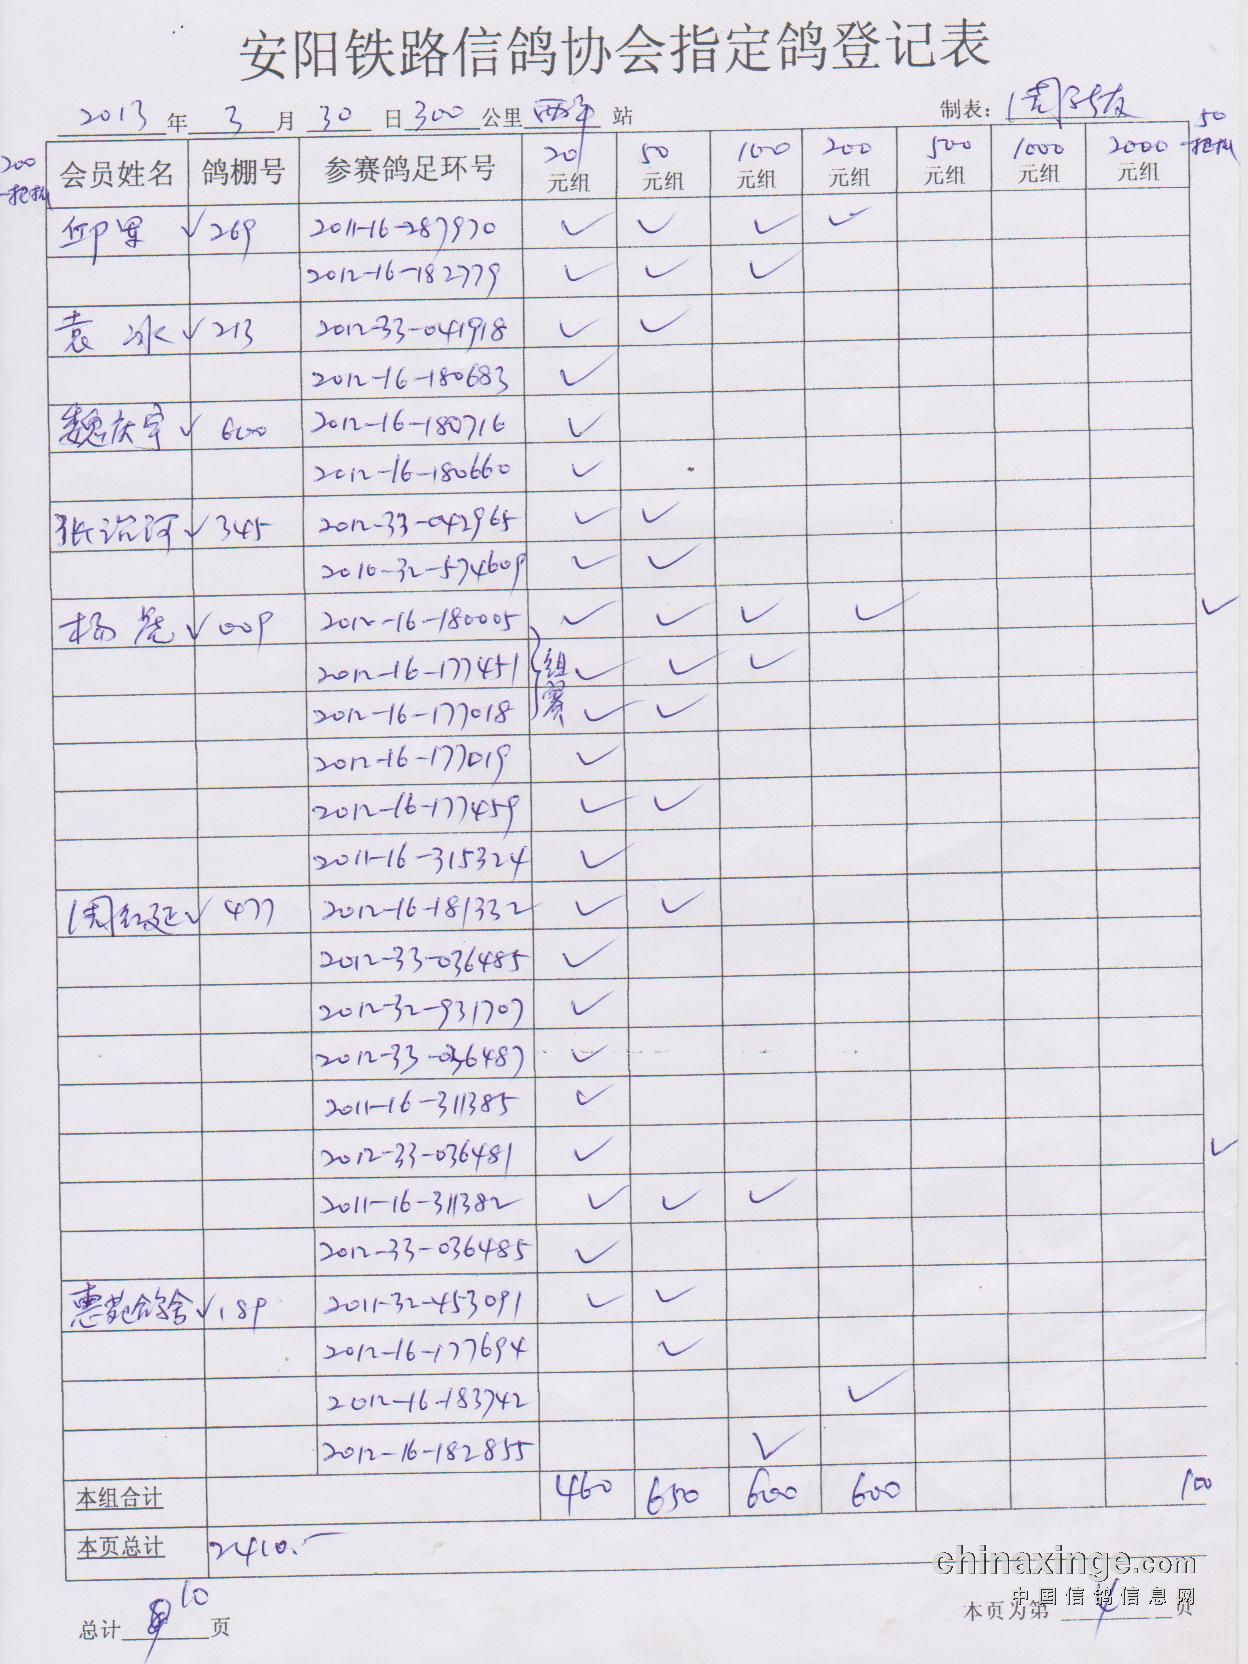 安阳铁路信鸽协会指定鸽登记表
2013 年 3 月 30 日 300 公里 西平 站 制表:
200 50
会员姓名 鸽棚号 参赛鸽足环号 20元组 50元组 100元组 200元组 500元组 1000元组 2000元组
邱军 ✓ 269 2011-16-287970 ✓ ✓ ✓ ✓
2012-16-182779 ✓ ✓ ✓
袁冰 ✓ 213 2012-33-041918 ✓ ✓
2012-16-180683 ✓
魏庆宇 ✓ 600 2012-16-180716 ✓
2012-16-180660 ✓
张治河 ✓ 345 2012-33-042965 ✓ ✓
2010-32-574609 ✓ ✓
杨 ✓ 009 2012-16-180005 ✓ ✓ ✓ ✓ ✓
2012-16-177451 组赛 ✓ ✓ ✓
2012-16-177018 ✓ ✓
2012-16-177019 ✓
2012-16-177459 ✓ ✓
2011-16-315324 ✓
周红延 ✓ 477 2012-16-181332 ✓ ✓
2012-33-036485 ✓
2012-32-931707 ✓
2012-33-036487 ✓
2011-16-311385 ✓
2012-33-036481 ✓ ✓
2011-16-311382 ✓ ✓ ✓
2012-33-036485 ✓
惠苑鸽舍 ✓ 189 2011-32-453091 ✓ ✓
2012-16-177694 ✓
2012-16-183742 ✓
2012-16-182855 ✓
本组合计 460 650 600 600 100
本页总计 2410.-
chinaxinge.com
中国信鸽信息网
总计 10 页 本页为第 4 页